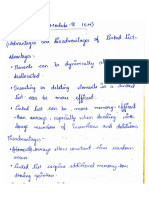 Module-III (5M)
Advantages and Disadvantages of Linked list.
Advantages:-
• Elements can be dynamically
deallocated
• Inserting or deleting elements in a linked
list can be more efficient
• Linked list can be more memory-efficient
than arrays, especially when dealing with
large numbers of insertions and deletions
Disadvantages:-
• arrays allow constant-time random
access
• Linked list require additional memory for
storing pointers.